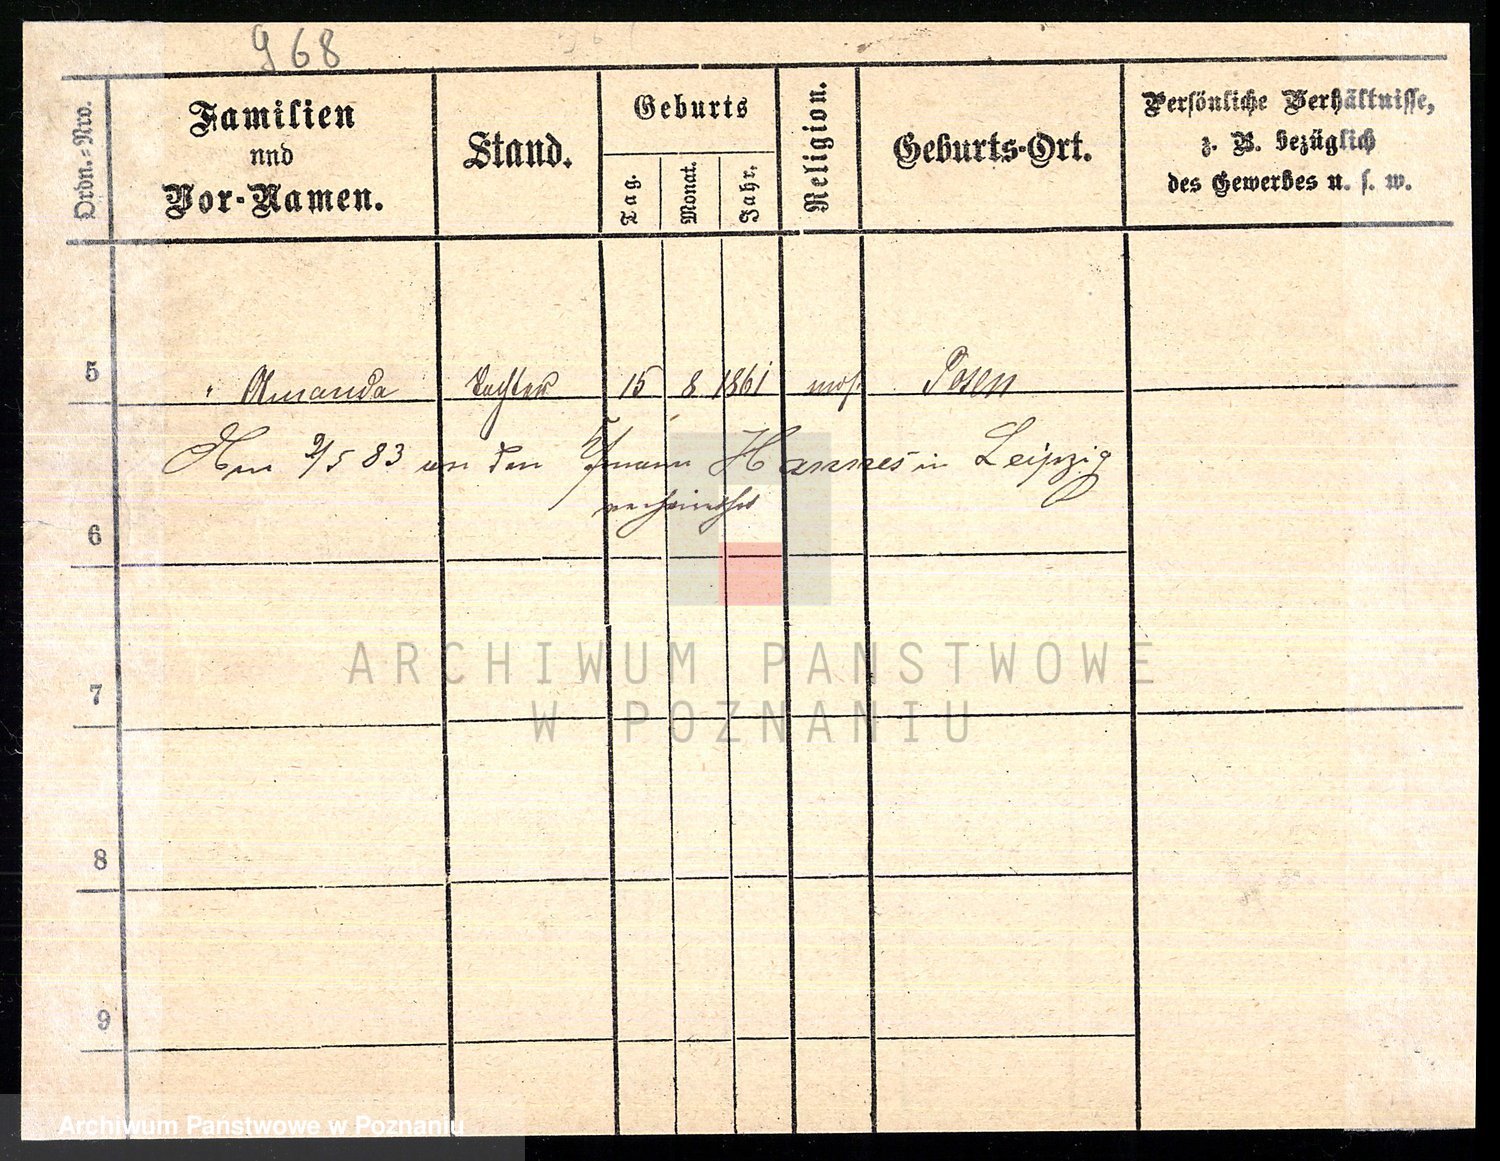 968
Ordn.=Nro.
Familien
nnd
Vor-Namen.
Stand.
Geburts
Tag.
Monat.
Jahr.
Religion.
Geburts-Ort.
Persönliche Verhältnisse,
z. B. bezüglich
des Gewerbes u. s. w.
5 Amanda Tochter 15 8 1861 mos. Posen
Am 9/5 83 an den Kfmann Hannes in Leipzig
verheirathet
6
7
8
9
ARCHIWUM PAŃSTWOWE
W POZNANIU
Archiwum Państwowe w Poznaniu